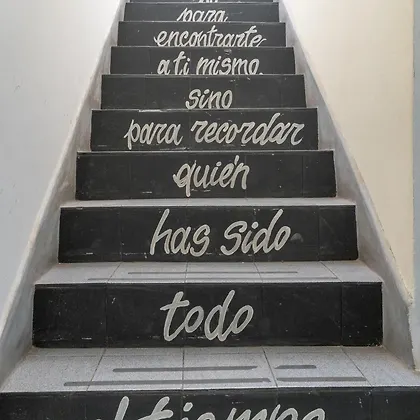 para
encontrarte
a ti mismo
sino
para recordar
quién
has sido
todo
el tiempo